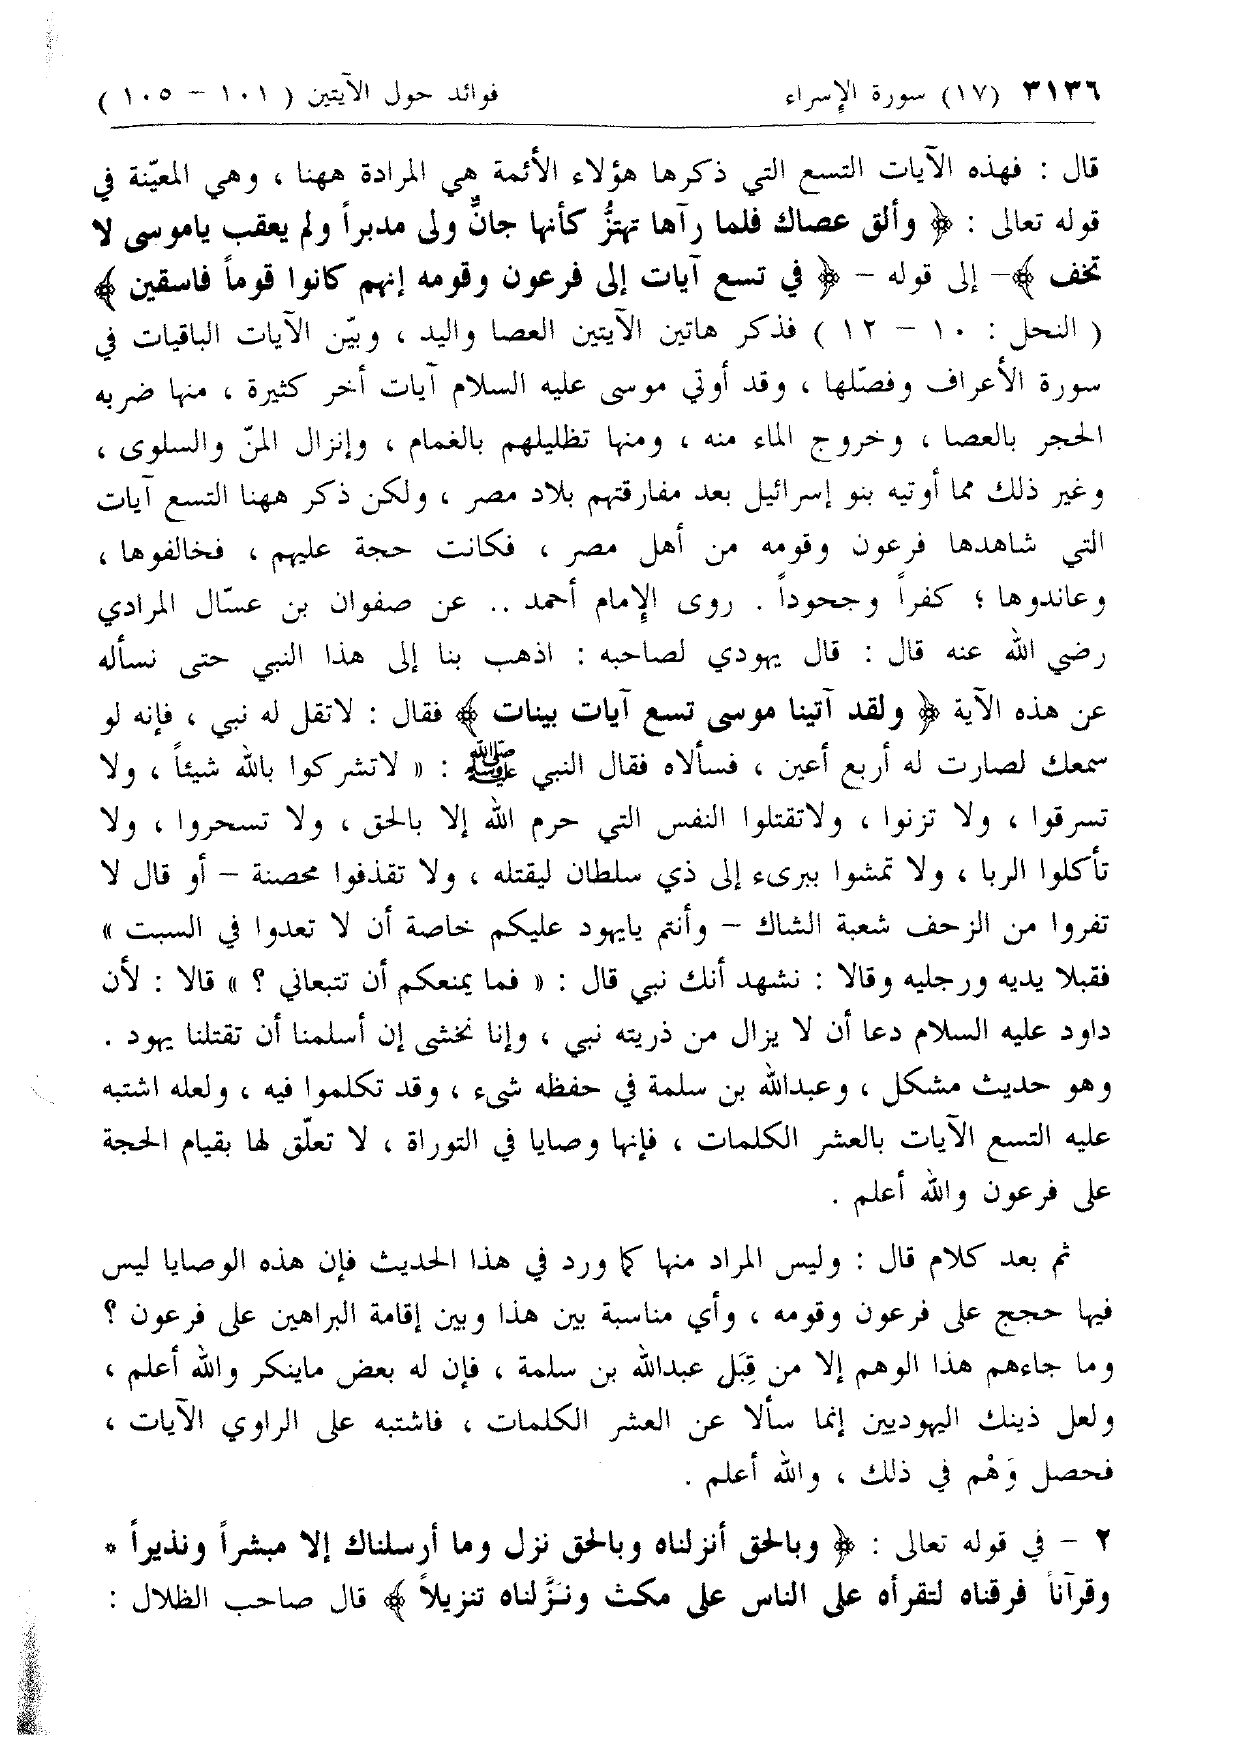 ٣١٣٦ (١٧) سورة الإسراء فوائد حول الآيتين ( ١٠١ – ١٠٥ )
قال : فهذه الآيات التسع التي ذكرها هؤلاء الأئمة هي المرادة ههنا ، وهي المعيّنة في
قوله تعالى : ﴿ وألق عصاك فلما رآها تهتزُّ كأنها جانٌّ ولى مدبراً ولم يعقب ياموسى لا
تخف ﴾– إلى قوله – ﴿ في تسع آيات إلى فرعون وقومه إنهم كانوا قوماً فاسقين ﴾
( النحل : ١٠ – ١٢ ) فذكر هاتين الآيتين العصا واليد ، وبيّن الآيات الباقيات في
سورة الأعراف وفصّلها ، وقد أوتي موسى عليه السلام آيات أخر كثيرة ، منها ضربه
الحجر بالعصا ، وخروج الماء منه ، ومنها تظليلهم بالغمام ، وإنزال المنّ والسلوى ،
وغير ذلك مما أوتيه بنو إسرائيل بعد مفارقتهم بلاد مصر ، ولكن ذكر ههنا التسع آيات
التي شاهدها فرعون وقومه من أهل مصر ، فكانت حجة عليهم ، فخالفوها ،
وعاندوها ؛ كفراً وجحوداً . روى الإمام أحمد .. عن صفوان بن عسّال المرادي
رضي الله عنه قال : قال يهودي لصاحبه : اذهب بنا إلى هذا النبي حتى نسأله
عن هذه الآية ﴿ ولقد آتينا موسى تسع آيات بينات ﴾ فقال : لاتقل له نبي ، فإنه لو
سمعك لصارت له أربع أعين ، فسألاه فقال النبي ﷺ : « لاتشركوا بالله شيئاً ، ولا
تسرقوا ، ولا تزنوا ، ولاتقتلوا النفس التي حرم الله إلا بالحق ، ولا تسحروا ، ولا
تأكلوا الربا ، ولا تمشوا ببرىء إلى ذي سلطان ليقتله ، ولا تقذفوا محصنة – أو قال لا
تفروا من الزحف شعبة الشاك – وأنتم يايهود عليكم خاصة أن لا تعدوا في السبت »
فقبلا يديه ورجليه وقالا : نشهد أنك نبي قال : « فما يمنعكم أن تتبعاني ؟ » قالا : لأن
داود عليه السلام دعا أن لا يزال من ذريته نبي ، وإنا نخشى إن أسلمنا أن تقتلنا يهود .
وهو حديث مشكل ، وعبدالله بن سلمة في حفظه شىء ، وقد تكلموا فيه ، ولعله اشتبه
عليه التسع الآيات بالعشر الكلمات ، فإنها وصايا في التوراة ، لا تعلّق لها بقيام الحجة
على فرعون والله أعلم .
ثم بعد كلام قال : وليس المراد منها كما ورد في هذا الحديث فإن هذه الوصايا ليس
فيها حجج على فرعون وقومه ، وأي مناسبة بين هذا وبين إقامة البراهين على فرعون ؟
وما جاءهم هذا الوهم إلا من قِبَل عبدالله بن سلمة ، فإن له بعض ماينكر والله أعلم ،
ولعل ذينك اليهوديين إنما سألا عن العشر الكلمات ، فاشتبه على الراوي الآيات ،
فحصل وَهْم في ذلك ، والله أعلم .
٢ – في قوله تعالى : ﴿ وبالحق أنزلناه وبالحق نزل وما أرسلناك إلا مبشراً ونذيراً *
وقرآناً فرقناه لتقرأه على الناس على مكث ونزَّلناه تنزيلاً ﴾ قال صاحب الظلال :